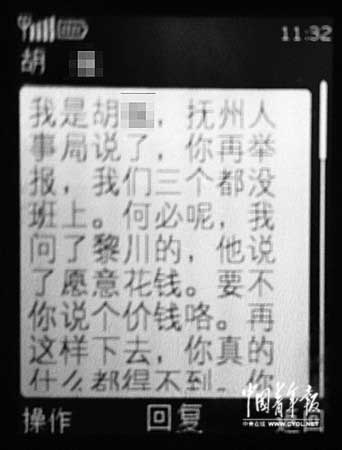 11:32
胡
我是胡 ，抚州人
事局说了，你再举
报，我们三个都没
班上。何必呢，我
问了黎川的，他说
了愿意花钱。要不
你说个价钱咯。再
这样下去，你真的
什么都得不到。你
中国青年报
中青在线 www.CYOL.NET
操作 回复 返回